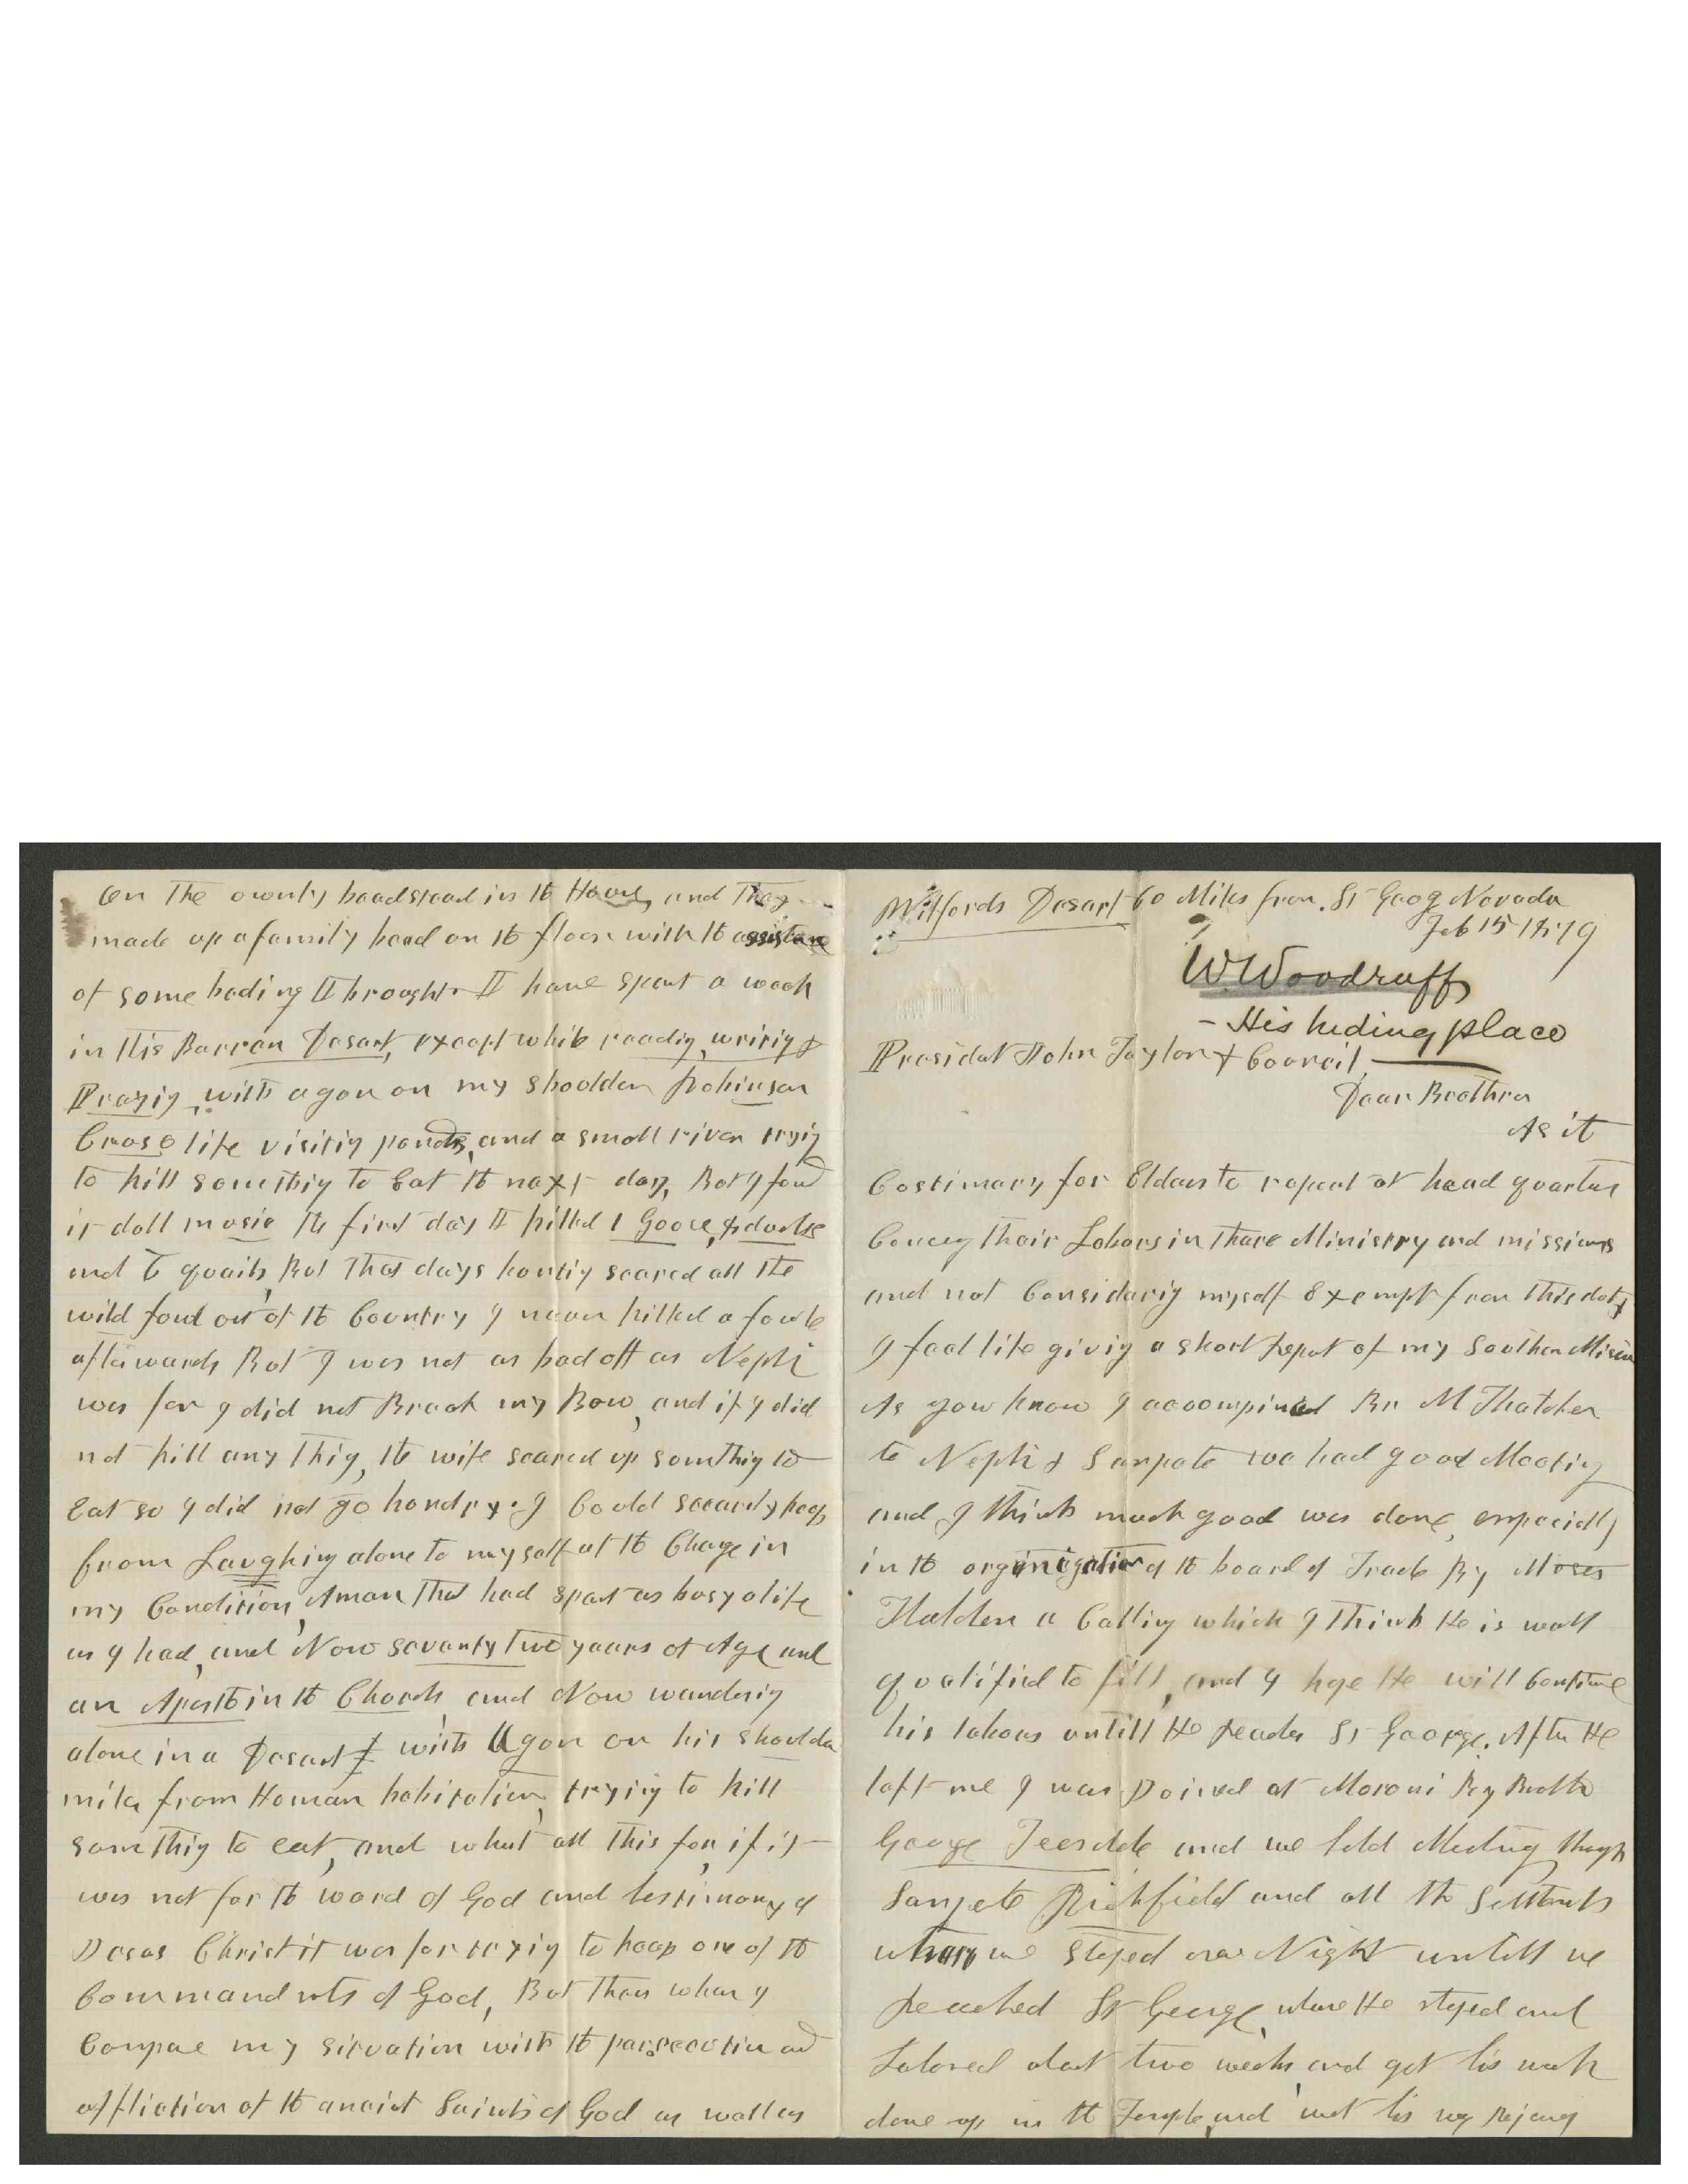 on the ownly beadstead in the House, and they
made up a family bead on the floor with the assistance
of some beding I brought. I have spent a week
in this Barren Desart, except while reading, writing &
Praying, with a gun on my shoulder Robinson
Cruso life visiting ponds, and a small river trying
to kill something to Eat the next day, But I found
it dull music the first day I killed 1 Goose, ducks
and 6 quails, But that days hunting scared all the
wild foul out of the Country I never killed a fowle
afterwards But I was not as bad off as Nephi
was for I did not Break my Bow, and if I did
not kill any thing, the wife scared up something to
Eat so I did not go hundry. I Could scearcly keep
from Laughing alone to myself at the Change in
my Condition, A man that had spent as busy a life
as I had, and Now seventy two years of Age and
an Apostle in the Church, and Now wandering
alone in a Desart with A gun on his shoulder
miles from Human habitation, trying to kill
something to eat, and what all this for, if it
was not for the word of God and testimony of
Jesus Christ it was for trying to keep one of the
Commandmts of God, But then when I
Compare my situation with the persecution and
affliction of the anciant Saints of God as well as
Wilfords Desart 60 Miles from St Georg Nevada
Feb 15 1879
W. Woodruff
- His hiding place
President John Taylor & Council
Dear Brethren
As it
Costimary for Elders to repeat at head quarters
Concerg their Labors in thare Ministry and missions
and not Considering myself Exempt from this duty
I feel like giving a short Report of my Southern Mission
As you know I accompined Br M Thatcher
to Nephi & Sanpete we had good Meeting
and I think much good was done, especially
in the organization of the board of Trade By Moses
Thatcher a Calling which I think He is well
qualified to fill, and I hope He will Continue
his labors untill He reaches St George. After He
left me I was Joined at Moroni By Brother
George Teesdale and we held Meeting through
Sanpete Richfield and all the Settlements
whare we stayed over Night untill we
reached St George, where He stayed and
Labored about two weeks, and got his work
done up in the Temple, and went his way Rejoicing